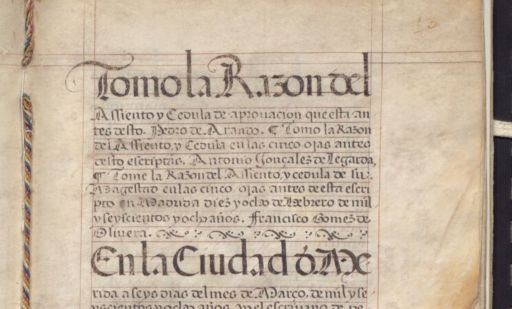 Tomo la Razon del
Assiento y Cedula de aprouacion que esta an
tes desto. Pedro de Arando. ¶ Tomo la Razon
del Assiento, y Cedula en las cinco ojas antes
desto escriptas. Antonio Gonçalez de Legarda,
¶ Tome la Razon del Assiento, y cedula de su
Magestad en las cinco ojas antes de esta escri
pto en Madrid a diez y ocho de Hebrero de mil
y seyscientos y ocho años. Francisco Gomez de
Olivera.
En la Ciudad ð Me
rida a seys dias del mes de Março, de mil y se
yscientos y ocho años